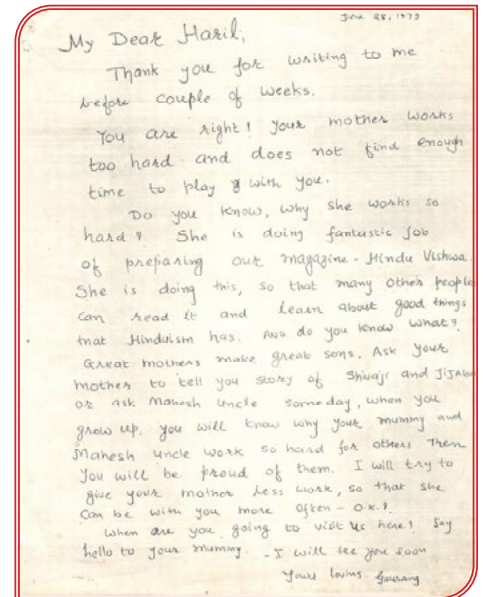 June 28, 1979
My Dear Haril,
Thank you for writing to me
before couple of weeks.
You are right! Your mother works
too hard and does not find enough
time to play with you.
Do you know, why she works so
hard? She is doing fantastic job
of preparing our magazine - Hindu Vishwa.
She is doing this, so that many other people
can read it and learn about good things
that Hinduism has. And do you know what?
Great mothers make great sons. Ask your
mother to tell you story of Shivaji and Jijabai
or ask Mahesh uncle someday, when you
grow up, you will know why your mummy and
Mahesh uncle work so hard for others Then
you will be proud of them. I will try to
give your mother less work, so that she
can be with you more often - O.K.?
When are you going to visit us here? Say
hello to your mummy. - I will see you soon
Yours loving Gaurang